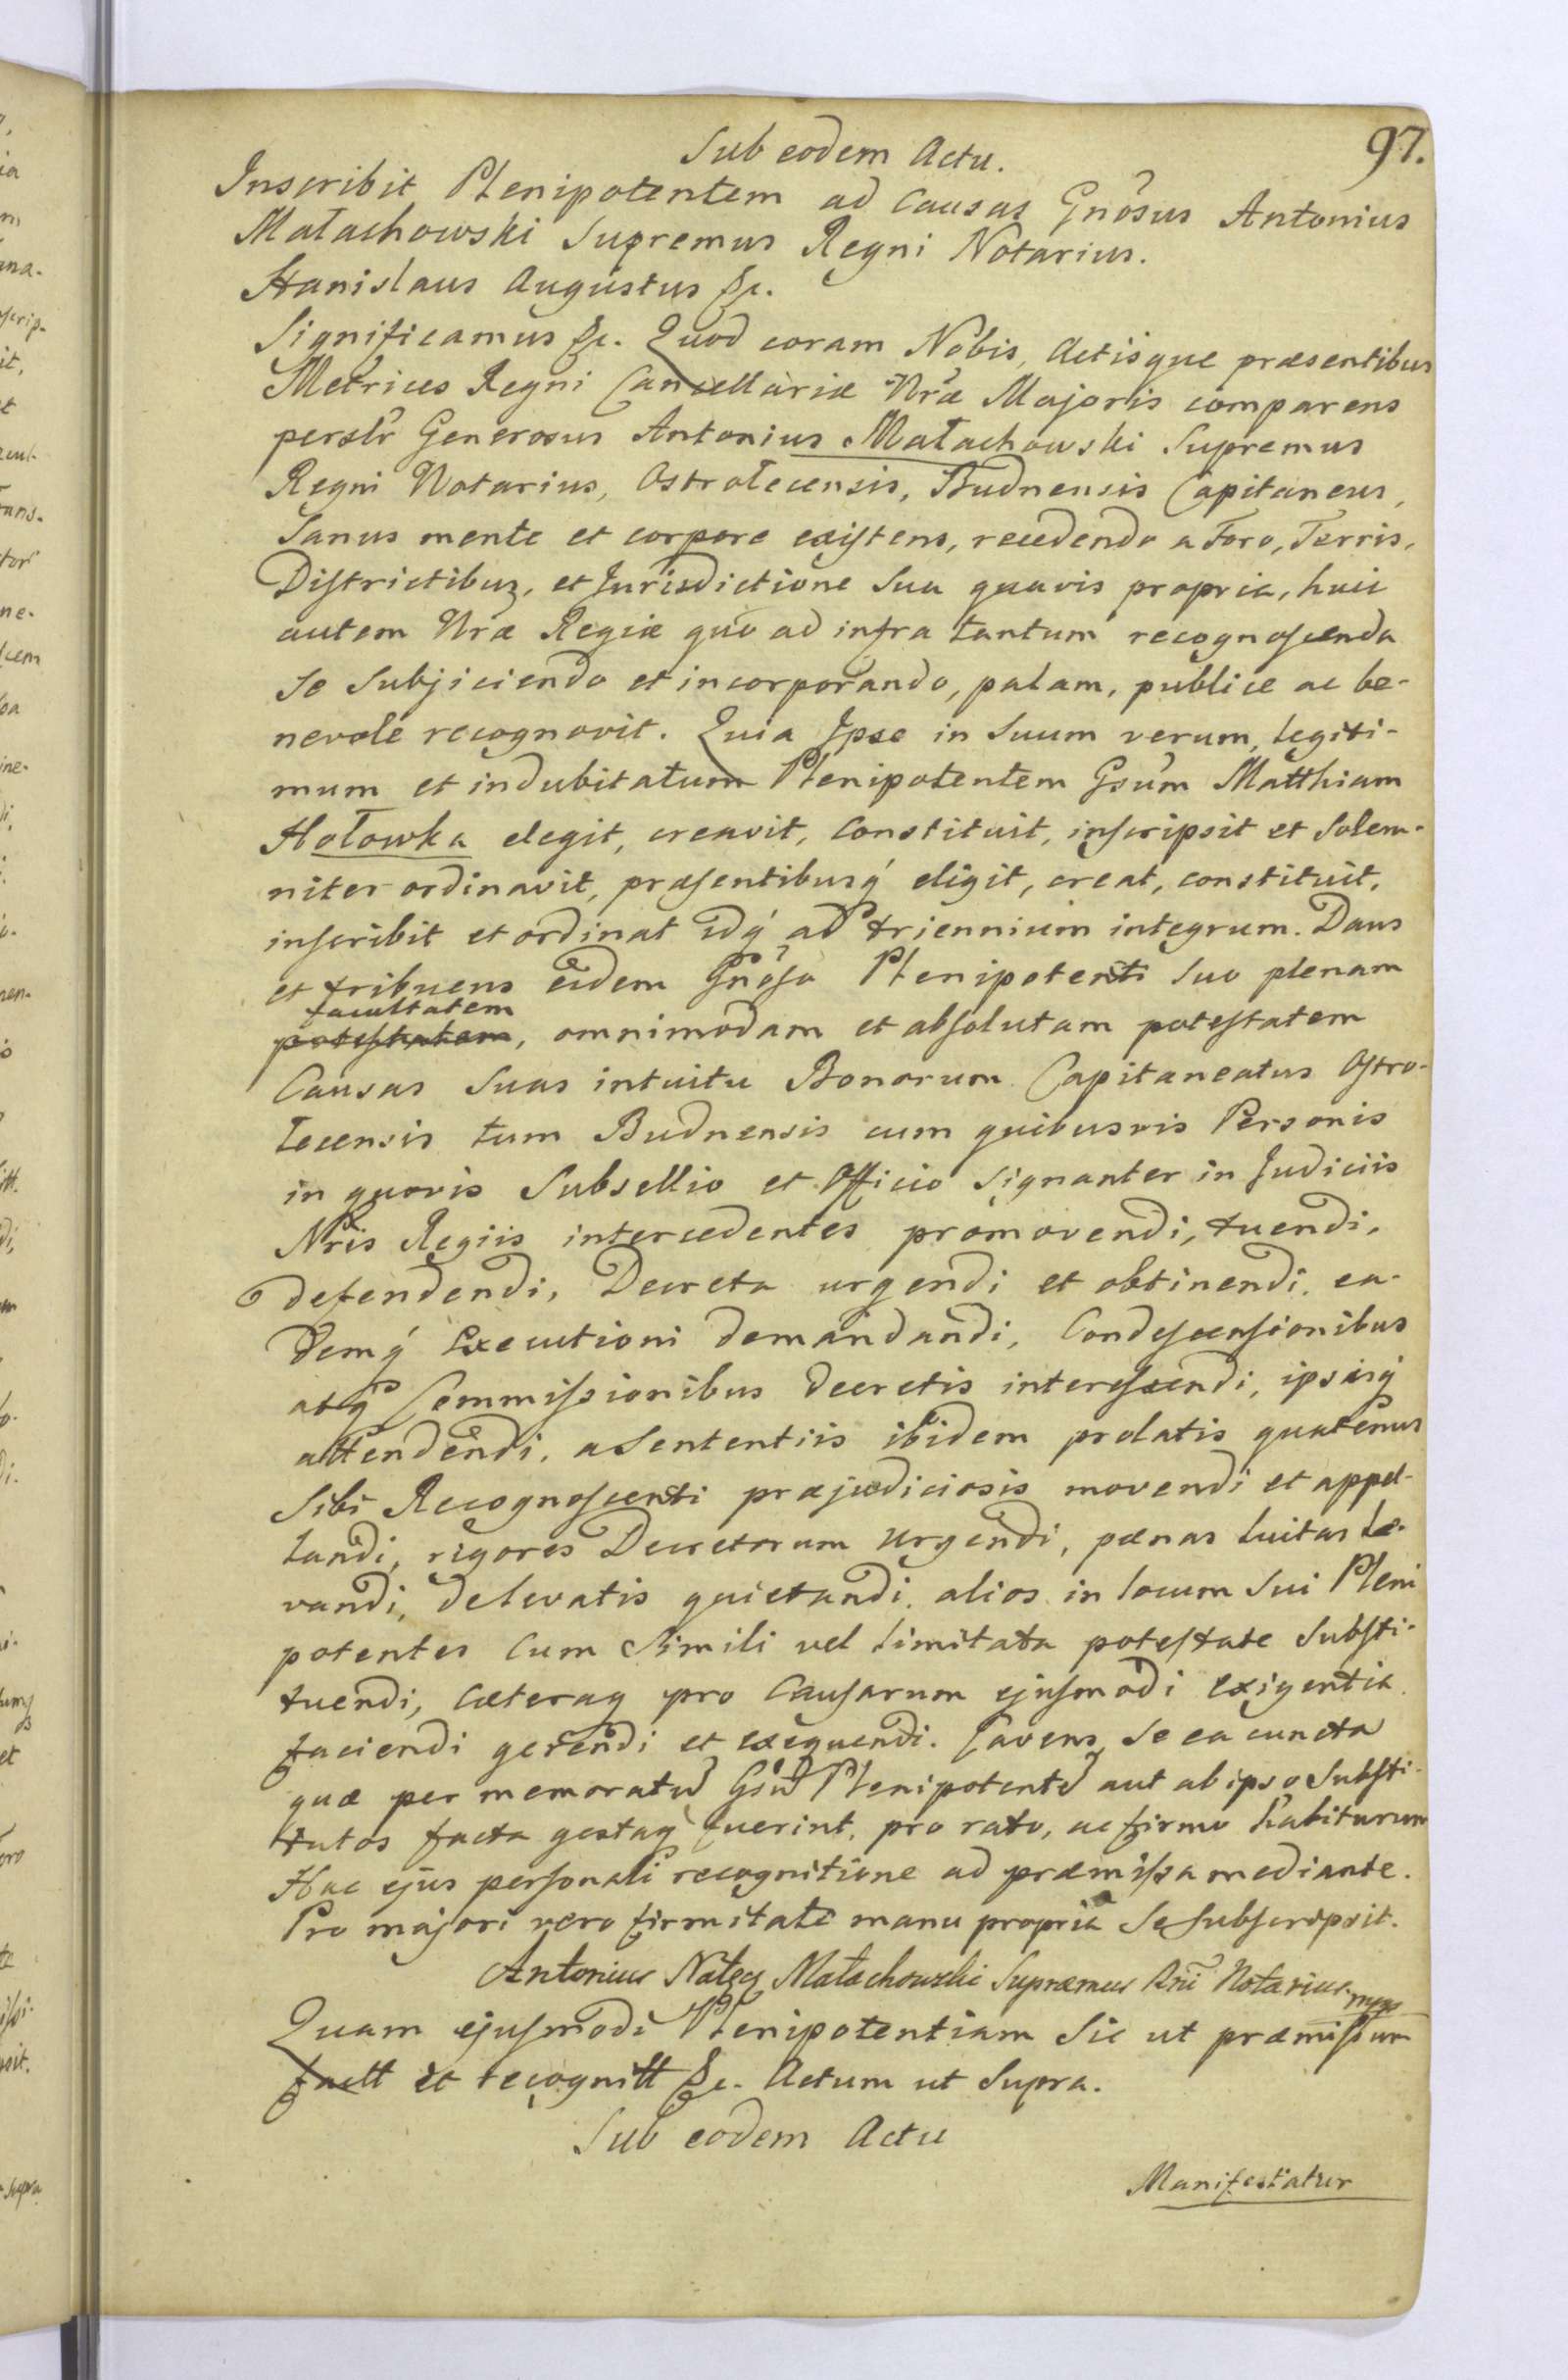 97.
Sub eodem Actu.
Inscribit Plenipotentem ad Causas Gnõsus Antonius
Małachowski Supremus Regni Notarius.
Stanislaus Augustus &c.
Significamus &c. Quod coram Nobis, Actisque præsentibus
Metrices Regni Cancellariæ Nræ Majoris comparens
persolr Generosus Antonius Małachowski Supremus
Regni Notarius, Ostrołecensis, Budnensis Capitaneus,
Sanus mente et corpore existens, recedendo a Foro, Terris,
Districtibuz, et Jurisdictione Sua quavis propria, huic
autem Nræ Regiæ quo ad infra tantum recognoscenda
Se Subjiciendo et incorporando, palam, publice ac be-
nevole recognovit. Quia Ipse in Suum verum, legiti-
mum et indubitatum Plenipotentem Gsum Matthiam
Hołowka elegit, creavit, Constituit, inscripsit et Solem-
niter ordinavit, præsentibusq́ eligit, creat, constituit,
inscribit et ordinat idq́ ad triennium integrum. Dans
et tribuens eidem Gnõso Plenipotenti Suo plenam
facultatem
potestatem, omnimodam et absolutam potestatem
Causas Suas intuitu Bonorum Capitaneatus Ostro-
łecensis tum Budnensis cum quibusvis Personis
in quovis Subsellio et Officio Signanter in Judiciis
Nris Regiis intercedentes promovendi, tuendi,
defendendi, Decreta urgendi et obtinendi, ea-
demq́ Executioni demandandi, Condescensionibus
atq́ Commissionibus decretis interessendi, ipsaiq́
attendendi, a Sententiis ibidem prolatis quatenus
Sibi Recognoscenti præjudiciosis movendi et appel-
landi, rigores Decretorum urgendi, pænas luitas le-
vandi, delevatis quietandi, alios in locum Sui Pleni
potentes Cum Simili vel limitata potestate Substi-
tuendi, Cæteraq pro Causarum ejusmodi exigentia
faciendi gerendi et exequendi. Cavens Se ea cuncta
quæ per memoratũ Gsũ Plenipotentẽ aut ab ipso Substi-
tutos facta gestaq́ fuerint, pro rato, ac firmo habiturum
Hac ejus personali recognitione ad præmissa mediante.
Pro majori vero firmitate manu propria Se Subscripsit.
Antonius Nałęcz Małachowski Supremus Rni Notarius mpp
Quam ejusmodi Plenipotentiam Sic ut præmissum
factt et recognitt &c. Actum ut Supra.
Sub eodem Actu
Manifestatur